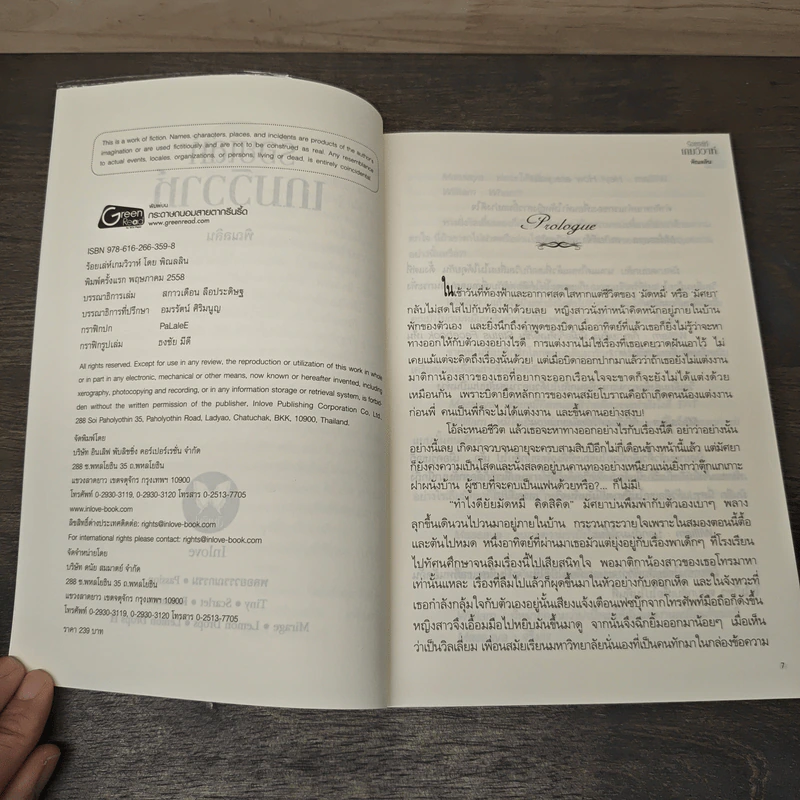 This is a work of fiction. Names, characters, places, and incidents are products of the author's
imagination or are used fictitiously and are not to be construed as real. Any resemblance
to actual events, locales, organizations, or persons, living or dead, is entirely coincidental.
Green Read
พิมพ์บน
กระดาษถนอมสายตากรีนรี้ด
www.greenread.com
ISBN 978-616-266-359-8
ร้อยเล่ห์เกมวิวาห์ โดย พิณลลิน
พิมพ์ครั้งแรก พฤษภาคม 2558
บรรณาธิการเล่ม สกาวเดือน ลือประดิษฐ
บรรณาธิการที่ปรึกษา อมรรัตน์ ศิริมนูญ
กราฟิกปก PaLaleE
กราฟิกรูปเล่ม ธงชัย มีดี
All rights reserved. Except for use in any review, the reproduction or utilization of this work in whole
or in part in any electronic, mechanical or other means, now known or hereafter invented, including
xerography, photocopying and recording, or in any information storage or retrieval system, is forbid-
den without the written permission of the publisher, Inlove Publishing Corporation Co, Ltd.,
288 Soi Paholyothin 35, Paholyothin Road, Ladyao, Chatuchak, BKK, 10900, Thailand.
จัดพิมพ์โดย
บริษัท อินเลิฟ พับลิชชิ่ง คอร์เปอร์เรชั่น จำกัด
288 ซ.พหลโยธิน 35 ถ.พหลโยธิน
แขวงลาดยาว เขตจตุจักร กรุงเทพฯ 10900
โทรศัพท์ 0-2930-3119, 0-2930-3120 โทรสาร 0-2513-7705
www.inlove-book.com
ลิขสิทธิ์ต่างประเทศติดต่อ: rights@inlove-book.com
For international rights please contact: rights@inlove-book.com
จัดจำหน่ายโดย
บริษัท ดนัย สมมาตย์ จำกัด
288 ซ.พหลโยธิน 35 ถ.พหลโยธิน
แขวงลาดยาว เขตจตุจักร กรุงเทพฯ 10900
โทรศัพท์ 0-2930-3119, 0-2930-3120 โทรสาร 0-2513-7705
ราคา 239 บาท
ร้อยเล่ห์
เกมวิวาห์
พิณลลิน
Prologue
ในเช้าวันที่ท้องฟ้าและอากาศสดใสหากแต่ชีวิตของ 'มัดหมี่' หรือ 'มัศยา'
กลับไม่สดใสไปกับท้องฟ้าด้วยเลย หญิงสาวนั่งทำหน้าคิดหนักอยู่ภายในบ้าน
พักของตัวเอง และยิ่งนึกถึงคำพูดของบิดาเมื่ออาทิตย์ที่แล้วเธอก็ยิ่งไม่รู้ว่าจะหา
ทางออกให้กับตัวเองอย่างไรดี การแต่งงานไม่ใช่เรื่องที่เธอเคยวาดฝันเอาไว้ ไม่
เคยแม้แต่จะคิดถึงเรื่องนั้นด้วย! แต่เมื่อบิดาออกปากมาแล้วว่าถ้าเธอยังไม่แต่งงาน
มาติกาน้องสาวของเธอที่อยากจะออกเรือนใจจะขาดก็จะยังไม่ได้แต่งด้วย
เหมือนกัน เพราะบิดายึดหลักการของคนสมัยโบราณคือถ้าเกิดคนน้องแต่งงาน
ก่อนพี่ คนเป็นพี่ก็จะไม่ได้แต่งงาน และขึ้นคานอย่างสงบ!
โอ้ล่ะหนอชีวิต แล้วเธอจะหาทางออกอย่างไรกับเรื่องนี้ดี อย่าว่าอย่างนั้น
อย่างนี้เลย เกิดมาจวบจนอายุจะครบสามสิบปีอีกไม่กี่เดือนข้างหน้านี้แล้ว แต่มัศยา
ก็ยังคงความเป็นโสดและนั่งสลดอยู่บนคานทองอย่างเหนียวแน่นยิ่งกว่าตุ๊กแกเกาะ
ฝาผนังบ้าน ผู้ชายที่จะคบเป็นแฟนด้วยหรือ?... ก็ไม่มี!
"ทำไงดียัยมัดหมี่ คิดสิคิด" มัศยาบ่นพึมพำกับตัวเองเบาๆ พลาง
ลุกขึ้นเดินวนไปวนมาอยู่ภายในบ้าน กระวนกระวายใจเพราะในสมองตอนนี้ตื้อ
และตันไปหมด หนึ่งอาทิตย์ที่ผ่านมาเธอมัวแต่ยุ่งอยู่กับเรื่องพาเด็กๆ ที่โรงเรียน
ไปทัศนศึกษาจนลืมเรื่องนี้ไปเสียสนิทใจ พอมาติกาน้องสาวของเธอโทรมาหา
เท่านั้นแหละ เรื่องที่ลืมไปแล้วก็ผุดขึ้นมาในหัวอย่างกับดอกเห็ด และในจังหวะที่
เธอกำลังกลุ้มใจกับตัวเองอยู่นั้นเสียงแจ้งเตือนเฟซบุ๊กจากโทรศัพท์มือถือก็ดังขึ้น
หญิงสาวจึงเอื้อมมือไปหยิบมันขึ้นมาดู จากนั้นจึงฉีกยิ้มออกมาน้อยๆ เมื่อเห็น
ว่าเป็นวิลเลี่ยม เพื่อนสมัยเรียนมหาวิทยาลัยนั่นเองที่เป็นคนทักมาในกล่องข้อความ
7